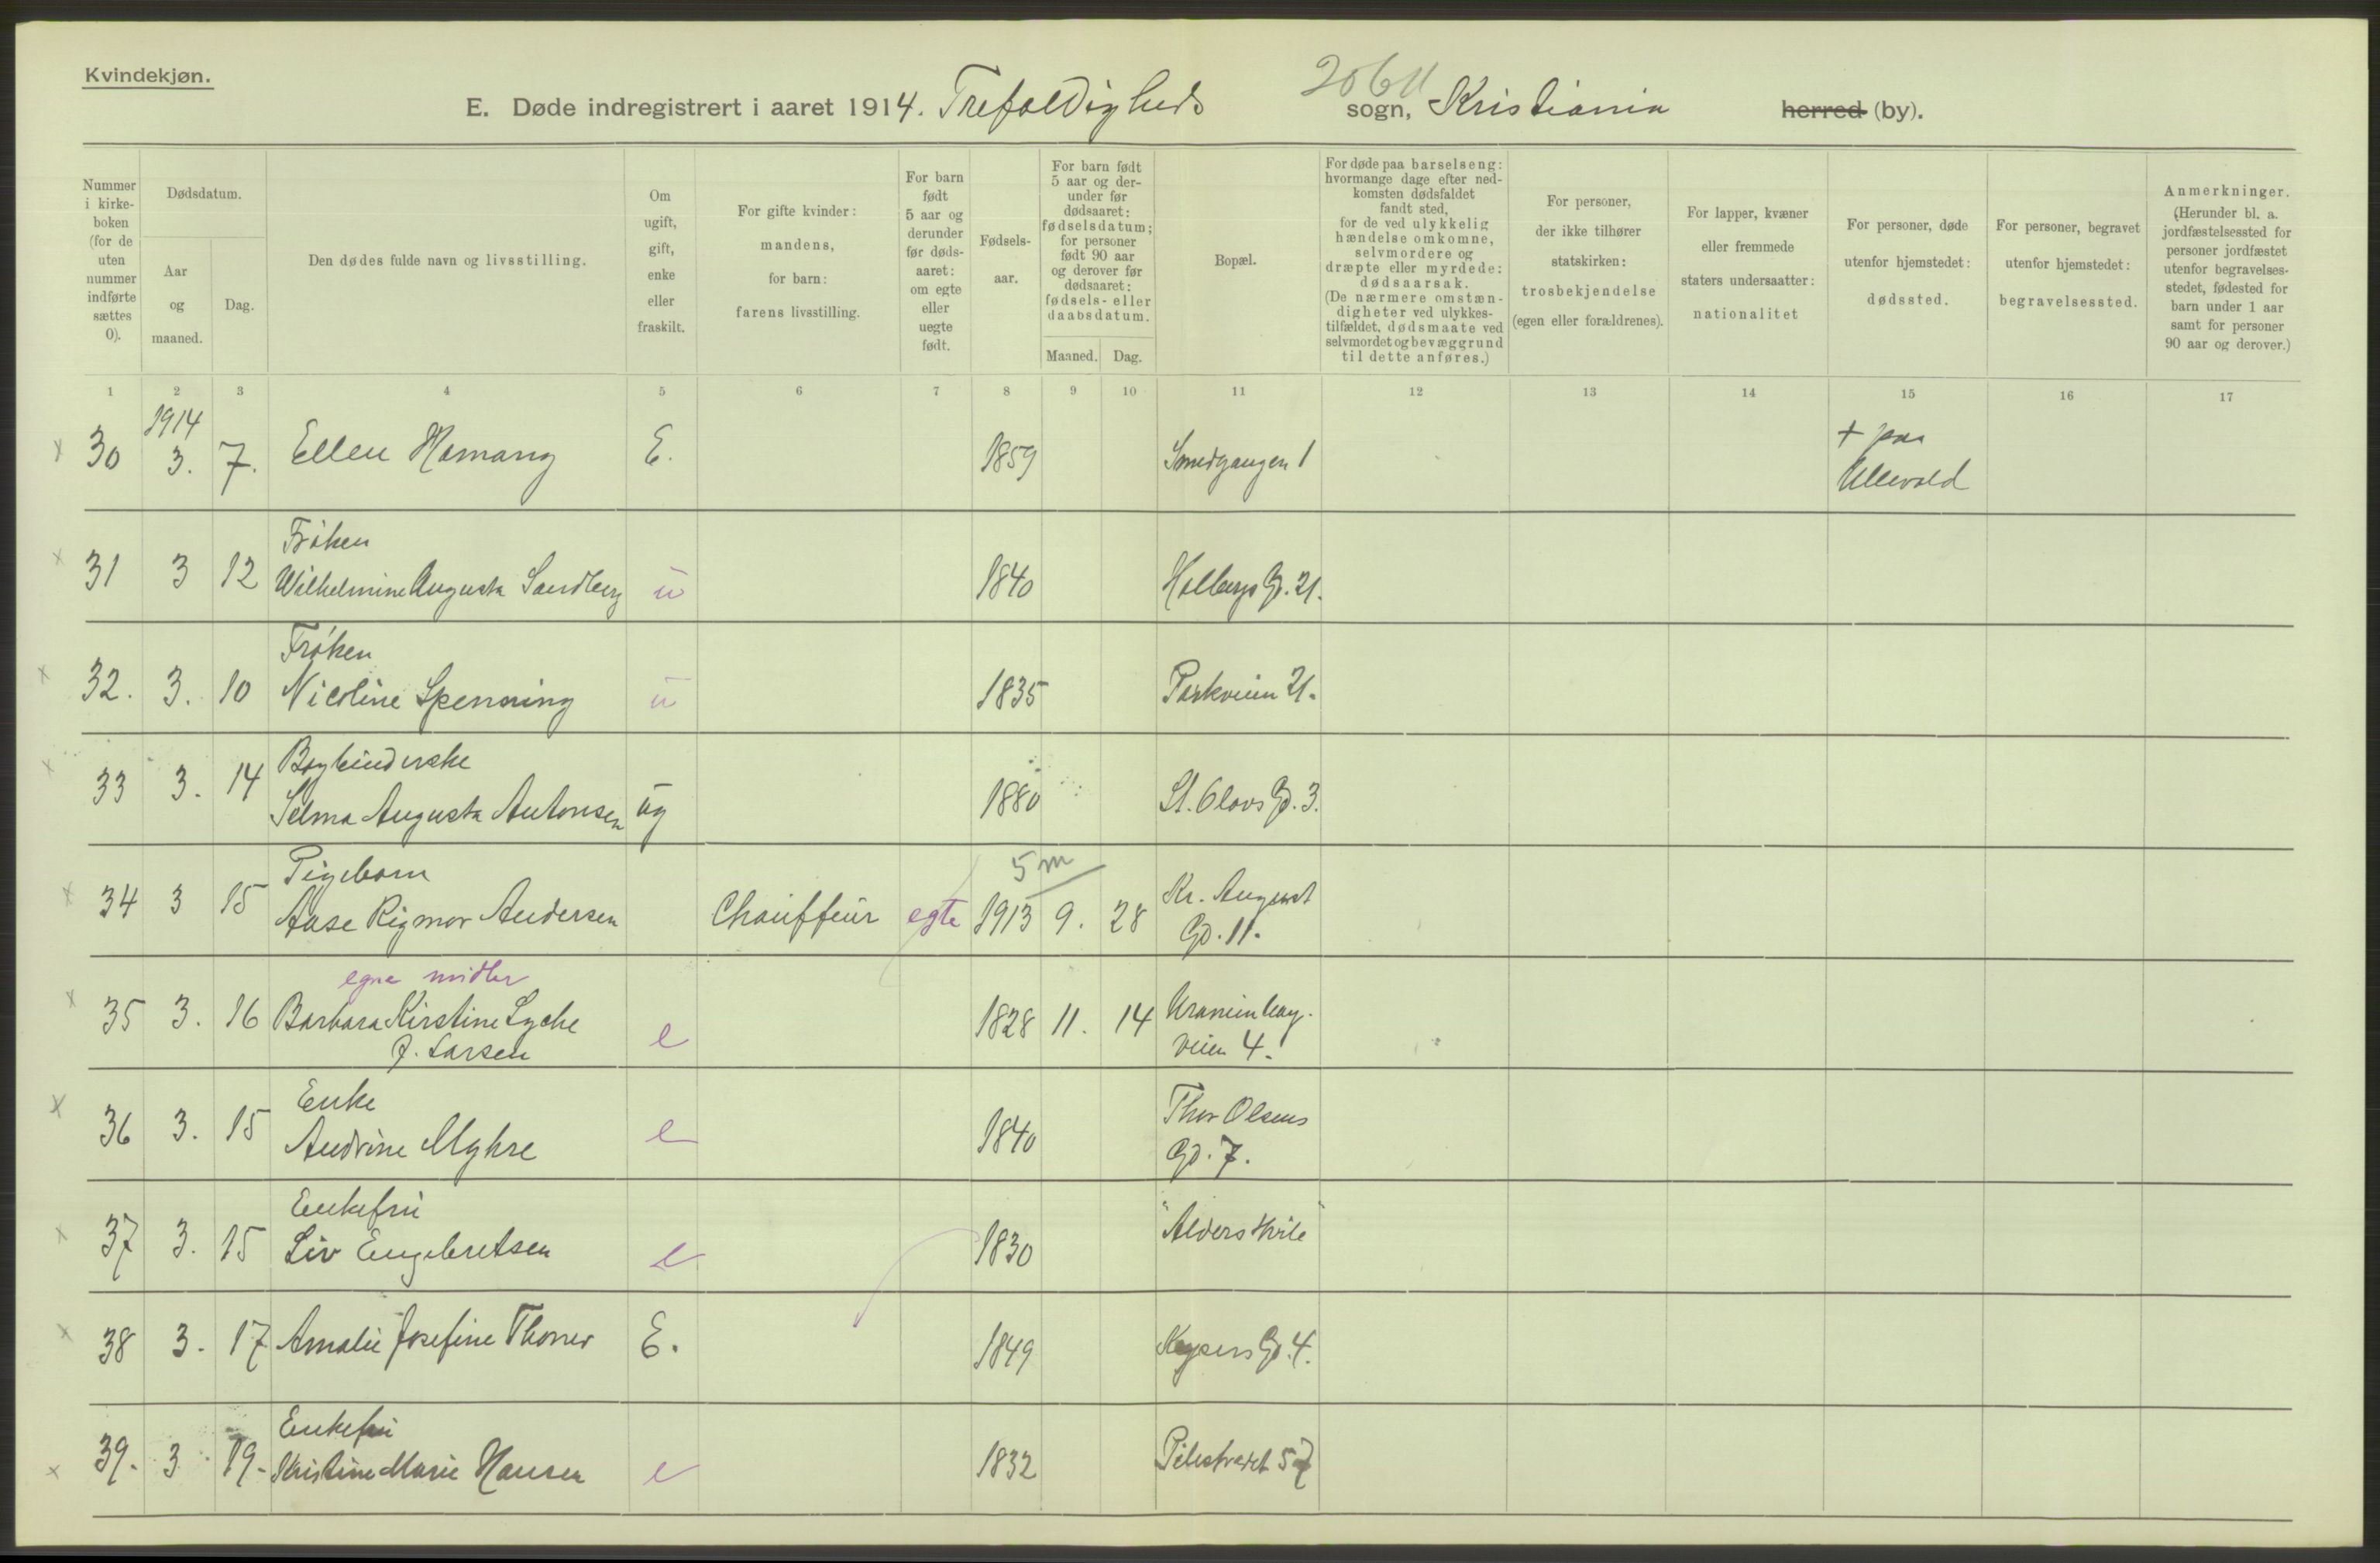 Kvindekjøn.
E. Døde indregistrert i aaret 1914. Trefoldigheds sogn, Kristiania herred (by).
Nummer i kirkeboken (for de uten nummer indførte sættes 0).
Dødsdatum.
Aar og maaned.
Dag.
Den dødes fulde navn og livsstilling.
Om ugift, gift, enke eller fraskilt.
For gifte kvinder: mandens, for barn: farens livsstilling.
For barn født 5 aar og derunder før dødsaaret: om egte eller uegte født.
Fødselsaar.
For barn født 5 aar og derunder før dødsaaret: fødselsdatum; for personer født 90 aar og derover før dødsaaret: fødsels- eller daabsdatum.
Maaned. Dag.
Bopæl.
For døde paa barselseng: hvormange dage efter nedkomsten dødsfaldet fandt sted, for de ved ulykkelig hændelse omkomne, selvmordere og dræpte eller myrdede: dødsaarsak. (De nærmere omstændigheter ved ulykkestilfældet, dødsmaate ved selvmordet og bevæggrund til dette anføres.)
For personer, der ikke tilhører statskirken: trosbekjendelse (egen eller forældrenes).
For lapper, kvæner eller fremmede staters undersaatter: nationalitet
For personer, døde utenfor hjemstedet: dødssted.
For personer, begravet utenfor hjemstedet: begravelsessted.
Anmerkninger. (Herunder bl. a. jordfæstelsessted for personer jordfæstet utenfor begravelsesstedet, fødested for barn under 1 aar samt for personer 90 aar og derover.)
1 2 3 4 5 6 7 8 9 10 11 12 13 14 15 16 17
1914
x 30 3. 7. Ellen Hamang E. 1859 Smedgangen 1 + paa
Ullevold
Frøken
x 31 3 12 Wilhelmine Augusta Sandberg u 1840 Holbergs Gd. 21.
Frøken
x 32. 3. 10 Nicoline Spenning u 1835 Parkveien 21.
Bogbinderske
x 33 3. 14 Selma Augusta Antonsen ug 1880 St. Olavs Gd. 3.
Pigebarn 5 m
x 34 3 15 Aase Rigmor Andersen Chauffeur egte 1913 9. 28 Kr. August
Gd. 11.
egne midler
x 35 3. 16 Barbara Kirstine Lyche e 1828 11. 14 Uranienborg-
f. Larsen veien 4.
Enke Thor Olsens
x 36 3. 15 Andrine Myhre e 1840 Gd. 7.
Enkefru
x 37 3. 15 Liv Engebretsen e 1830 "Alders Hvile"
x 38 3. 17 Amalie Josefine E. 1849 Keysers Gd. 4.
Enkefru
x 39. 3 19. Kristine Marie Hansen e 1832 Pilestrædet 57